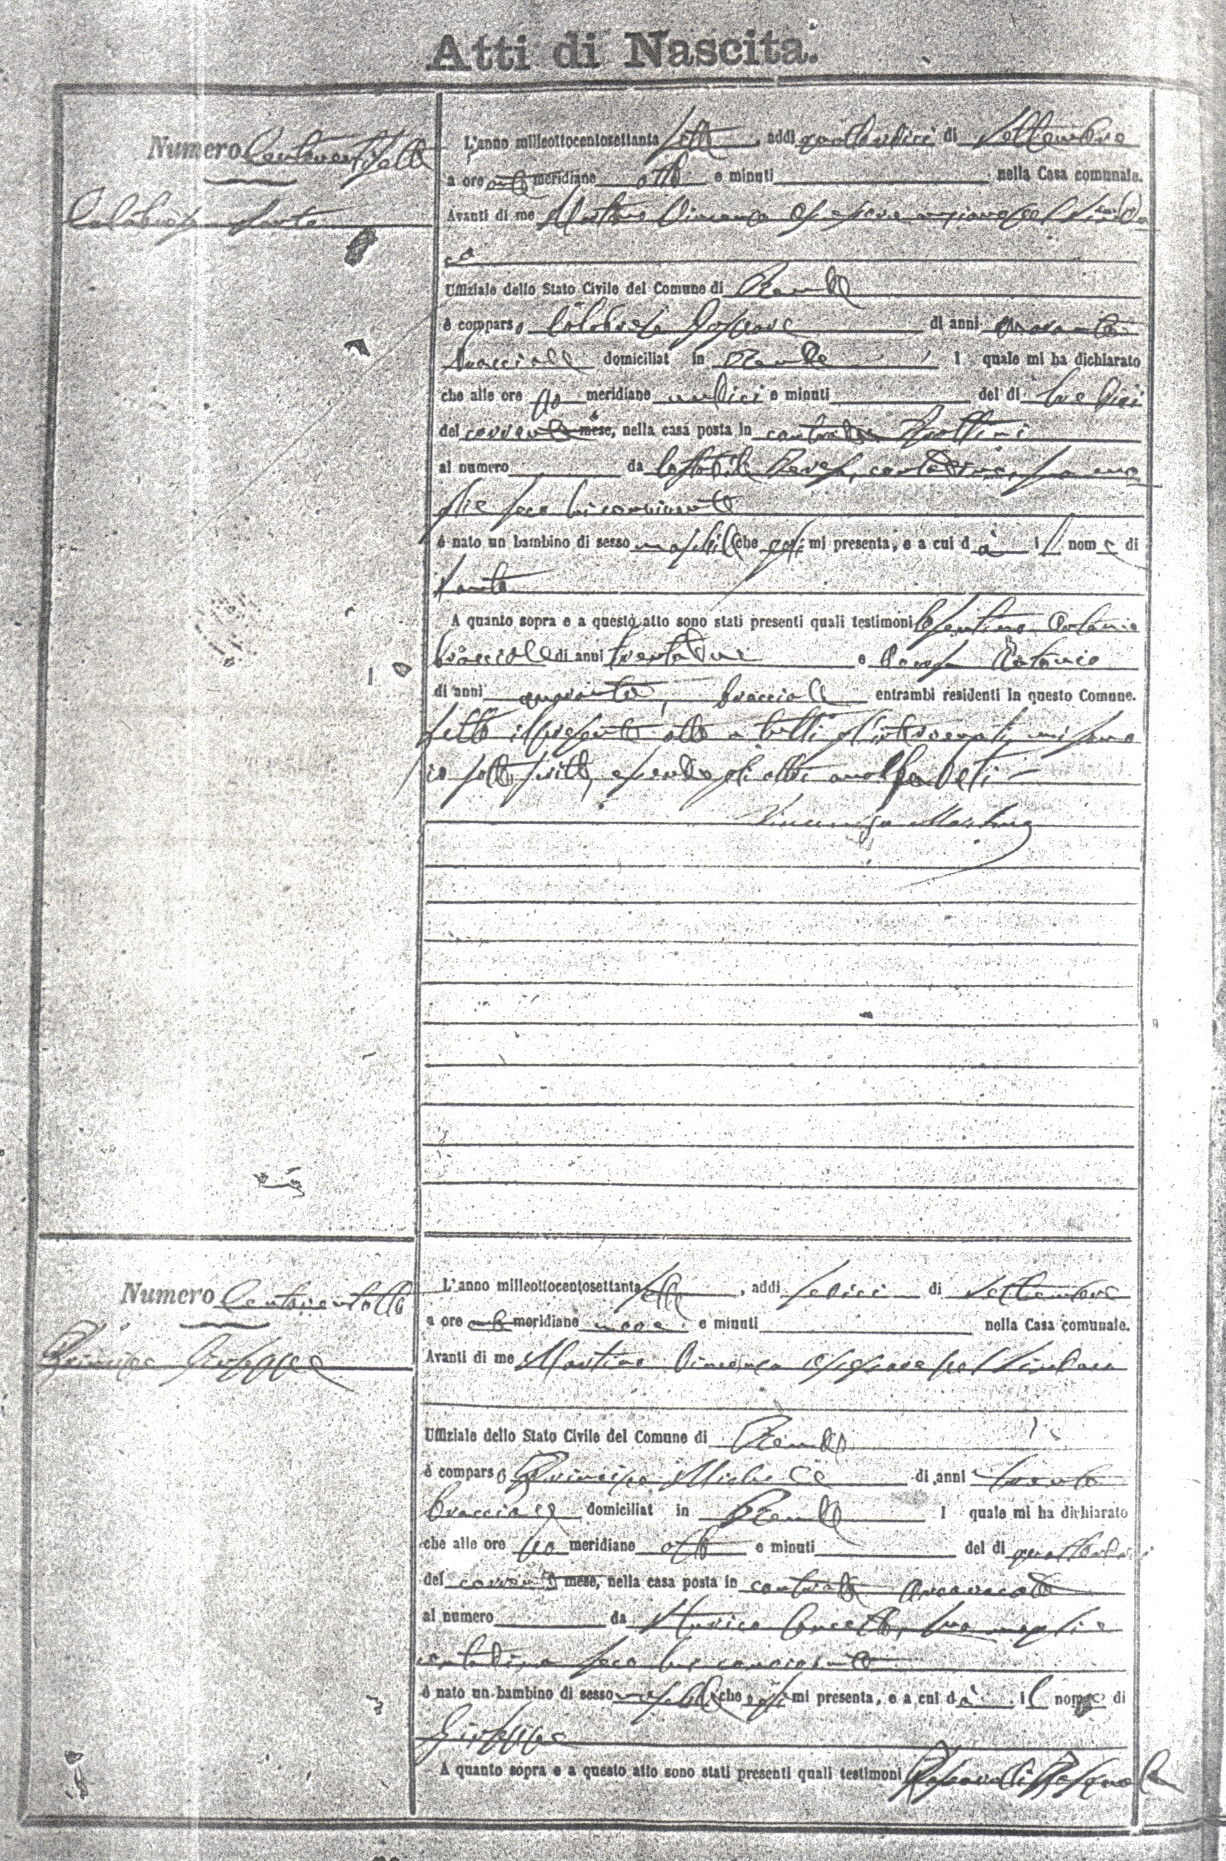 Atti di Nascita.
Numero Centoventisette
Calabrese Santo
L'anno milleottocentosettanta sette, addì quattordici di Settembre
a ore ante meridiane otto e minuti nella Casa comunale.
Avanti di me Martino Vincenzo Assessore anziano pel Sinda
co
Uffiziale dello Stato Civile del Comune di Rende
è comparso Calabrese Gaspare di anni
bracciale domiciliat in Rende l quale mi ha dichiarato
che alle ore po meridiane undici e minuti del dì tredici
del corrente mese, nella casa posta in contrada
al numero da contadina, sua mo
glie seco lui convivente
è nato un bambino di sesso maschile che egli mi presenta, e a cui dà il nome di
Santo
A quanto sopra e a questo atto sono stati presenti quali testimoni Cosentino Antonio
bracciale di anni trentadue e Antonio
di anni quaranta, bracciale entrambi residenti in questo Comune.
Letto il presente atto a tutti gl'intervenuti mi sono
io sottoscritto, essendo gli altri analfabeti
Vincenzo Martino
Numero Centoventotto
Principe Giuseppe
L'anno milleottocentosettanta sette, addì sedici di Settembre
a ore ante meridiane nove e minuti nella Casa comunale.
Avanti di me Martino Vincenzo Assessore pel Sindaco
Uffiziale dello Stato Civile del Comune di Rende
è comparso Principe Michele di anni trenta
bracciale domiciliat in Rende l quale mi ha dichiarato
che alle ore po meridiane otto e minuti del dì quattordici
del corrente mese, nella casa posta in contrada Arcavacata
al numero da Concetta, sua moglie
contadina seco lui convivente
è nato un bambino di sesso maschile che egli mi presenta, e a cui dà il nome di
Giuseppe
A quanto sopra e a questo atto sono stati presenti quali testimoni